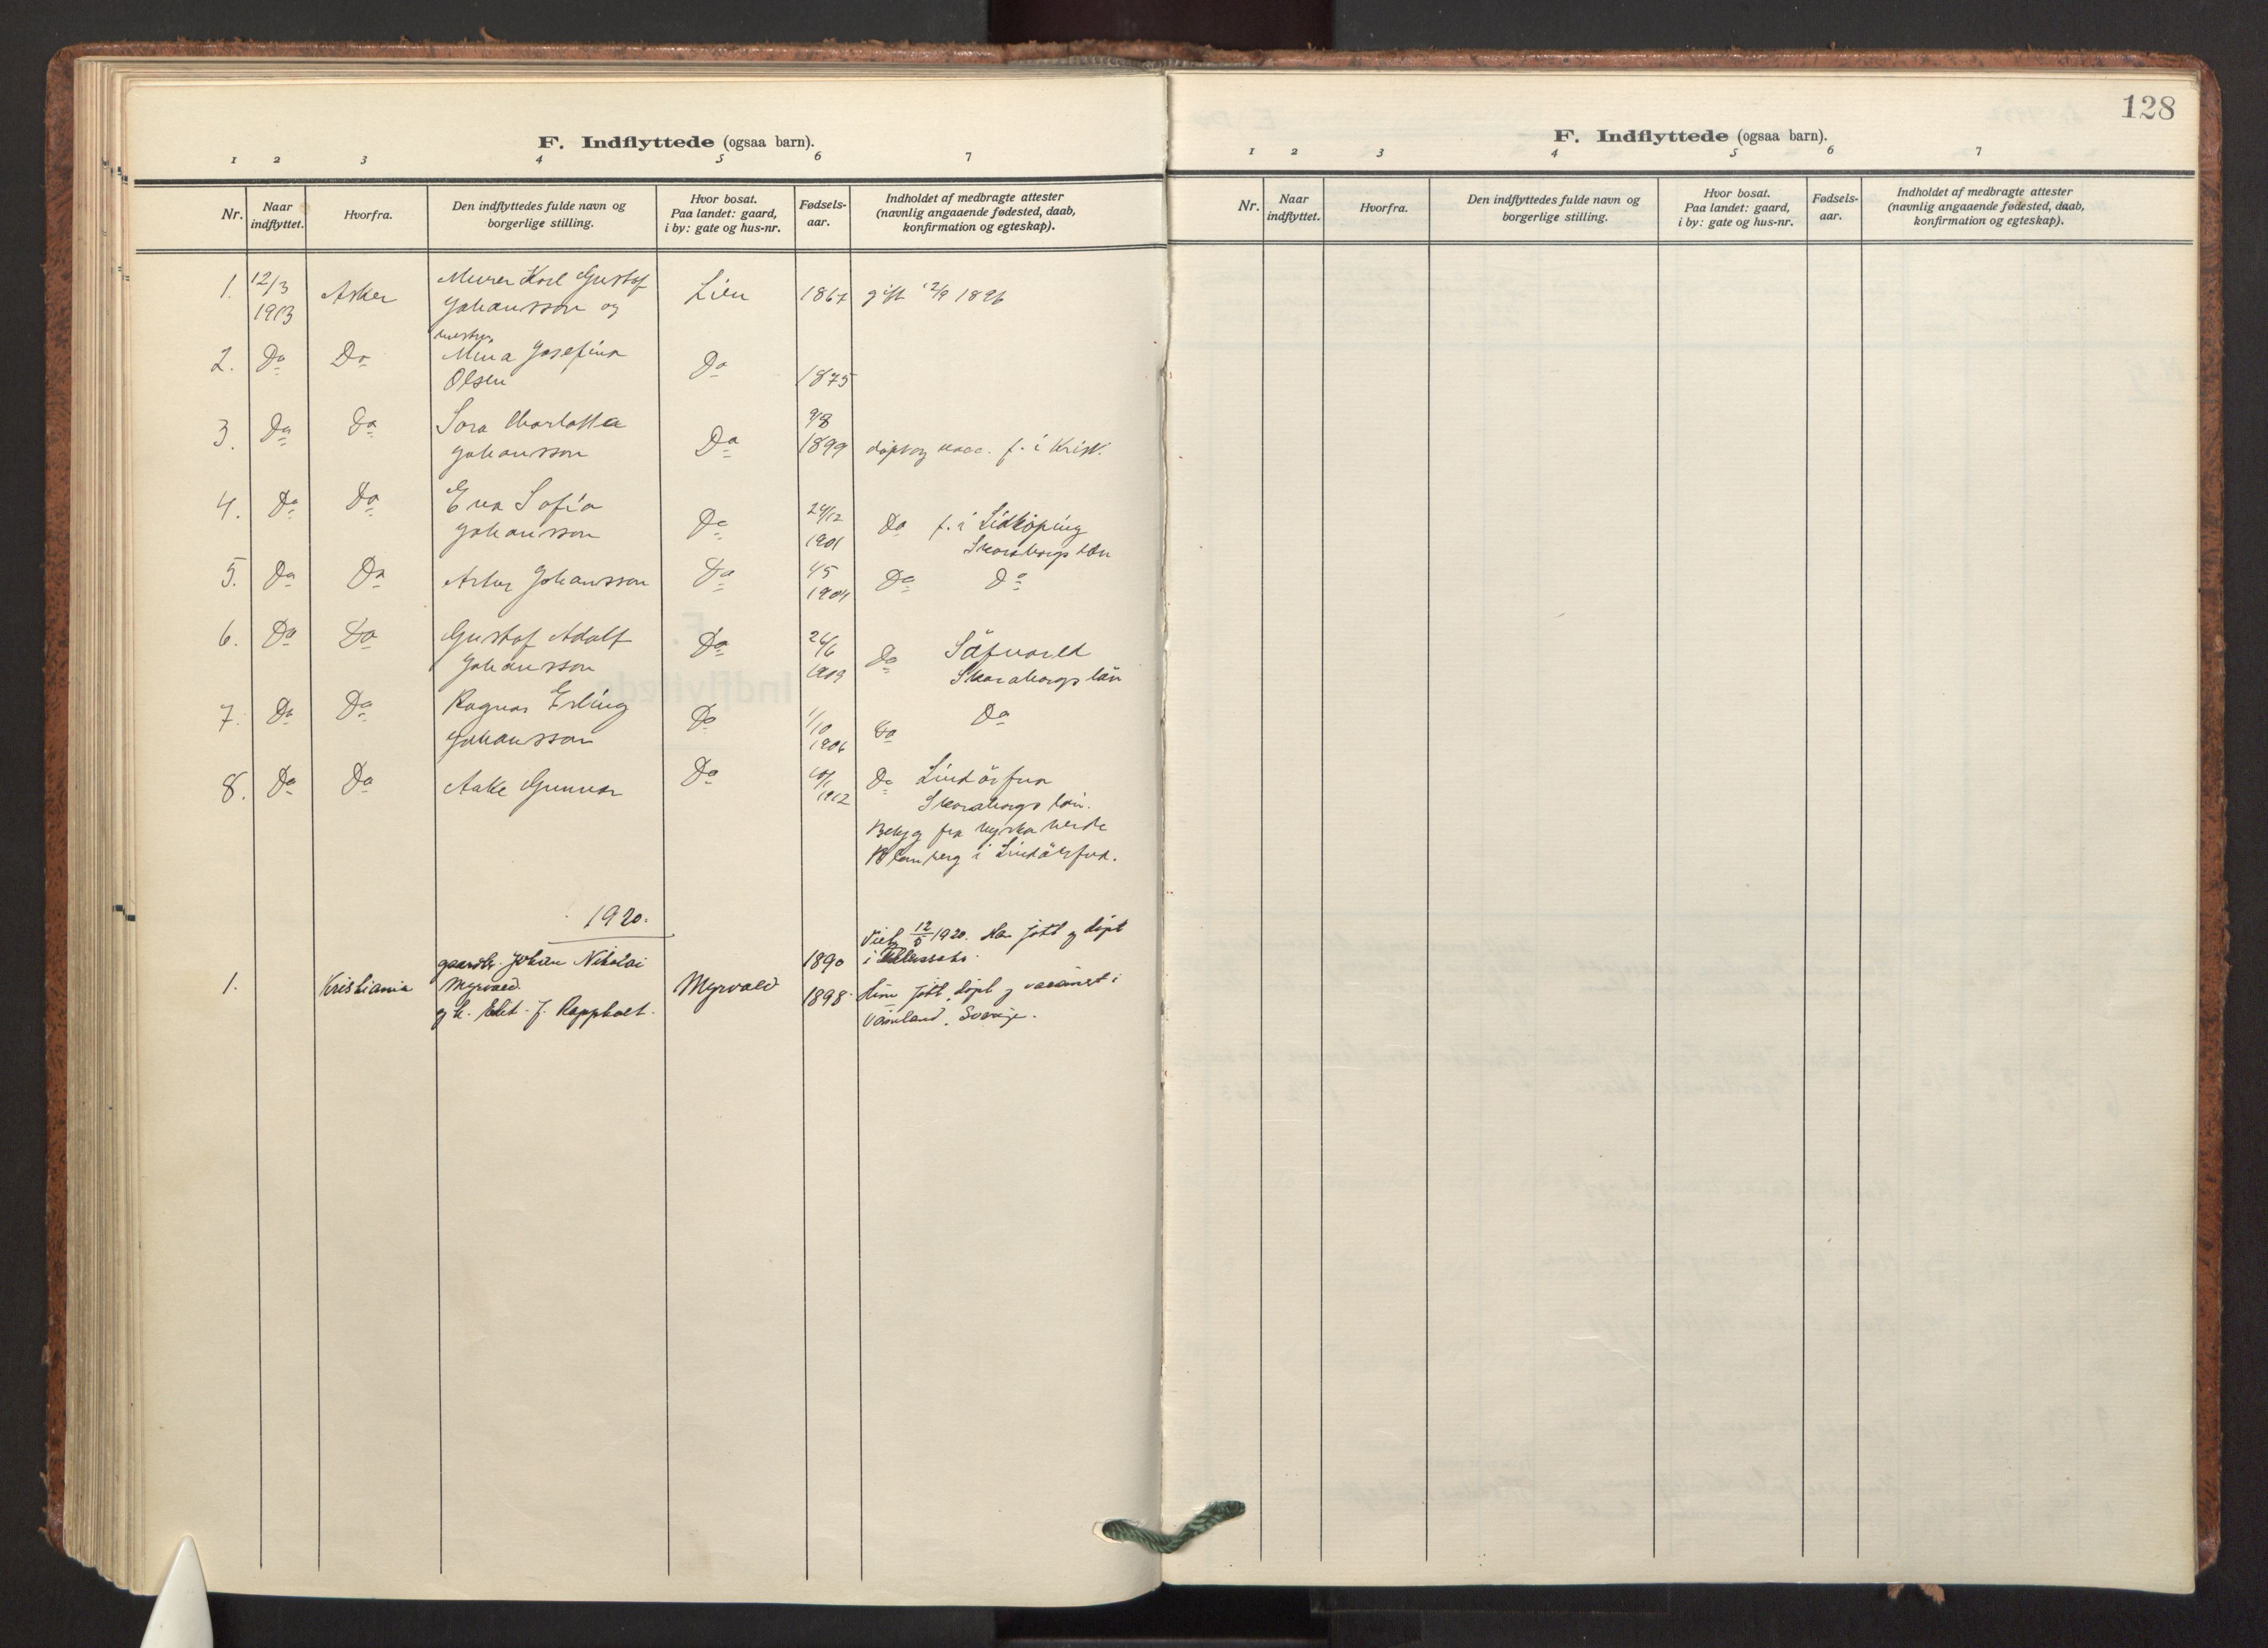 F. Indflyttede (ogsaa barn).
1 2 3 4 5 6 7
Nr. Naar indflyttet. Hvorfra. Den indflyttedes fulde navn og borgerlige stilling. Hvor bosat. Paa landet: gaard, i by: gate og hus-nr. Fødsels-aar. Indholdet af medbragte attester (navnlig angaaende fødested, daab, konfirmation og egteskap).
1. 12/3 1913 Asker Murer Karl Gustaf Johansson og Lien 1867 gift 1896
hustru
2. Do Do Mina Josefina Olsen Do 1875
3. Do Do Sara Charlotta Johansson Do 1899 døpt og vacc. f. i
4. Do Do Eva Sofia Johansson Do 24/12 1901 Do f. i Lidköping
Skaraborgs län
5. Do Do Artur Johansson Do 1904 Do Do
6. Do Do Gustaf Adolf Johansson Do 26/6 1909 Do
Skaraborgs län
7. Do Do Ragnar Erling Johansson Do 1/10 1906 Do Do
8. Do Do Aake Gunnar Do 1912 Do
Skaraborgs län.
fra
i
1920.
1. Kristiania gaardbr. Johan Nikolai Myrvold Myrvold 1890 12/5 1920. Han født og døpt
i
og h. f. 1898 Hun født, døpt og vaccinert i
Värmland, Sverige.
128
F. Indflyttede (ogsaa barn).
1 2 3 4 5 6 7
Nr. Naar indflyttet. Hvorfra. Den indflyttedes fulde navn og borgerlige stilling. Hvor bosat. Paa landet: gaard, i by: gate og hus-nr. Fødsels-aar. Indholdet af medbragte attester (navnlig angaaende fødested, daab, konfirmation og egteskap).